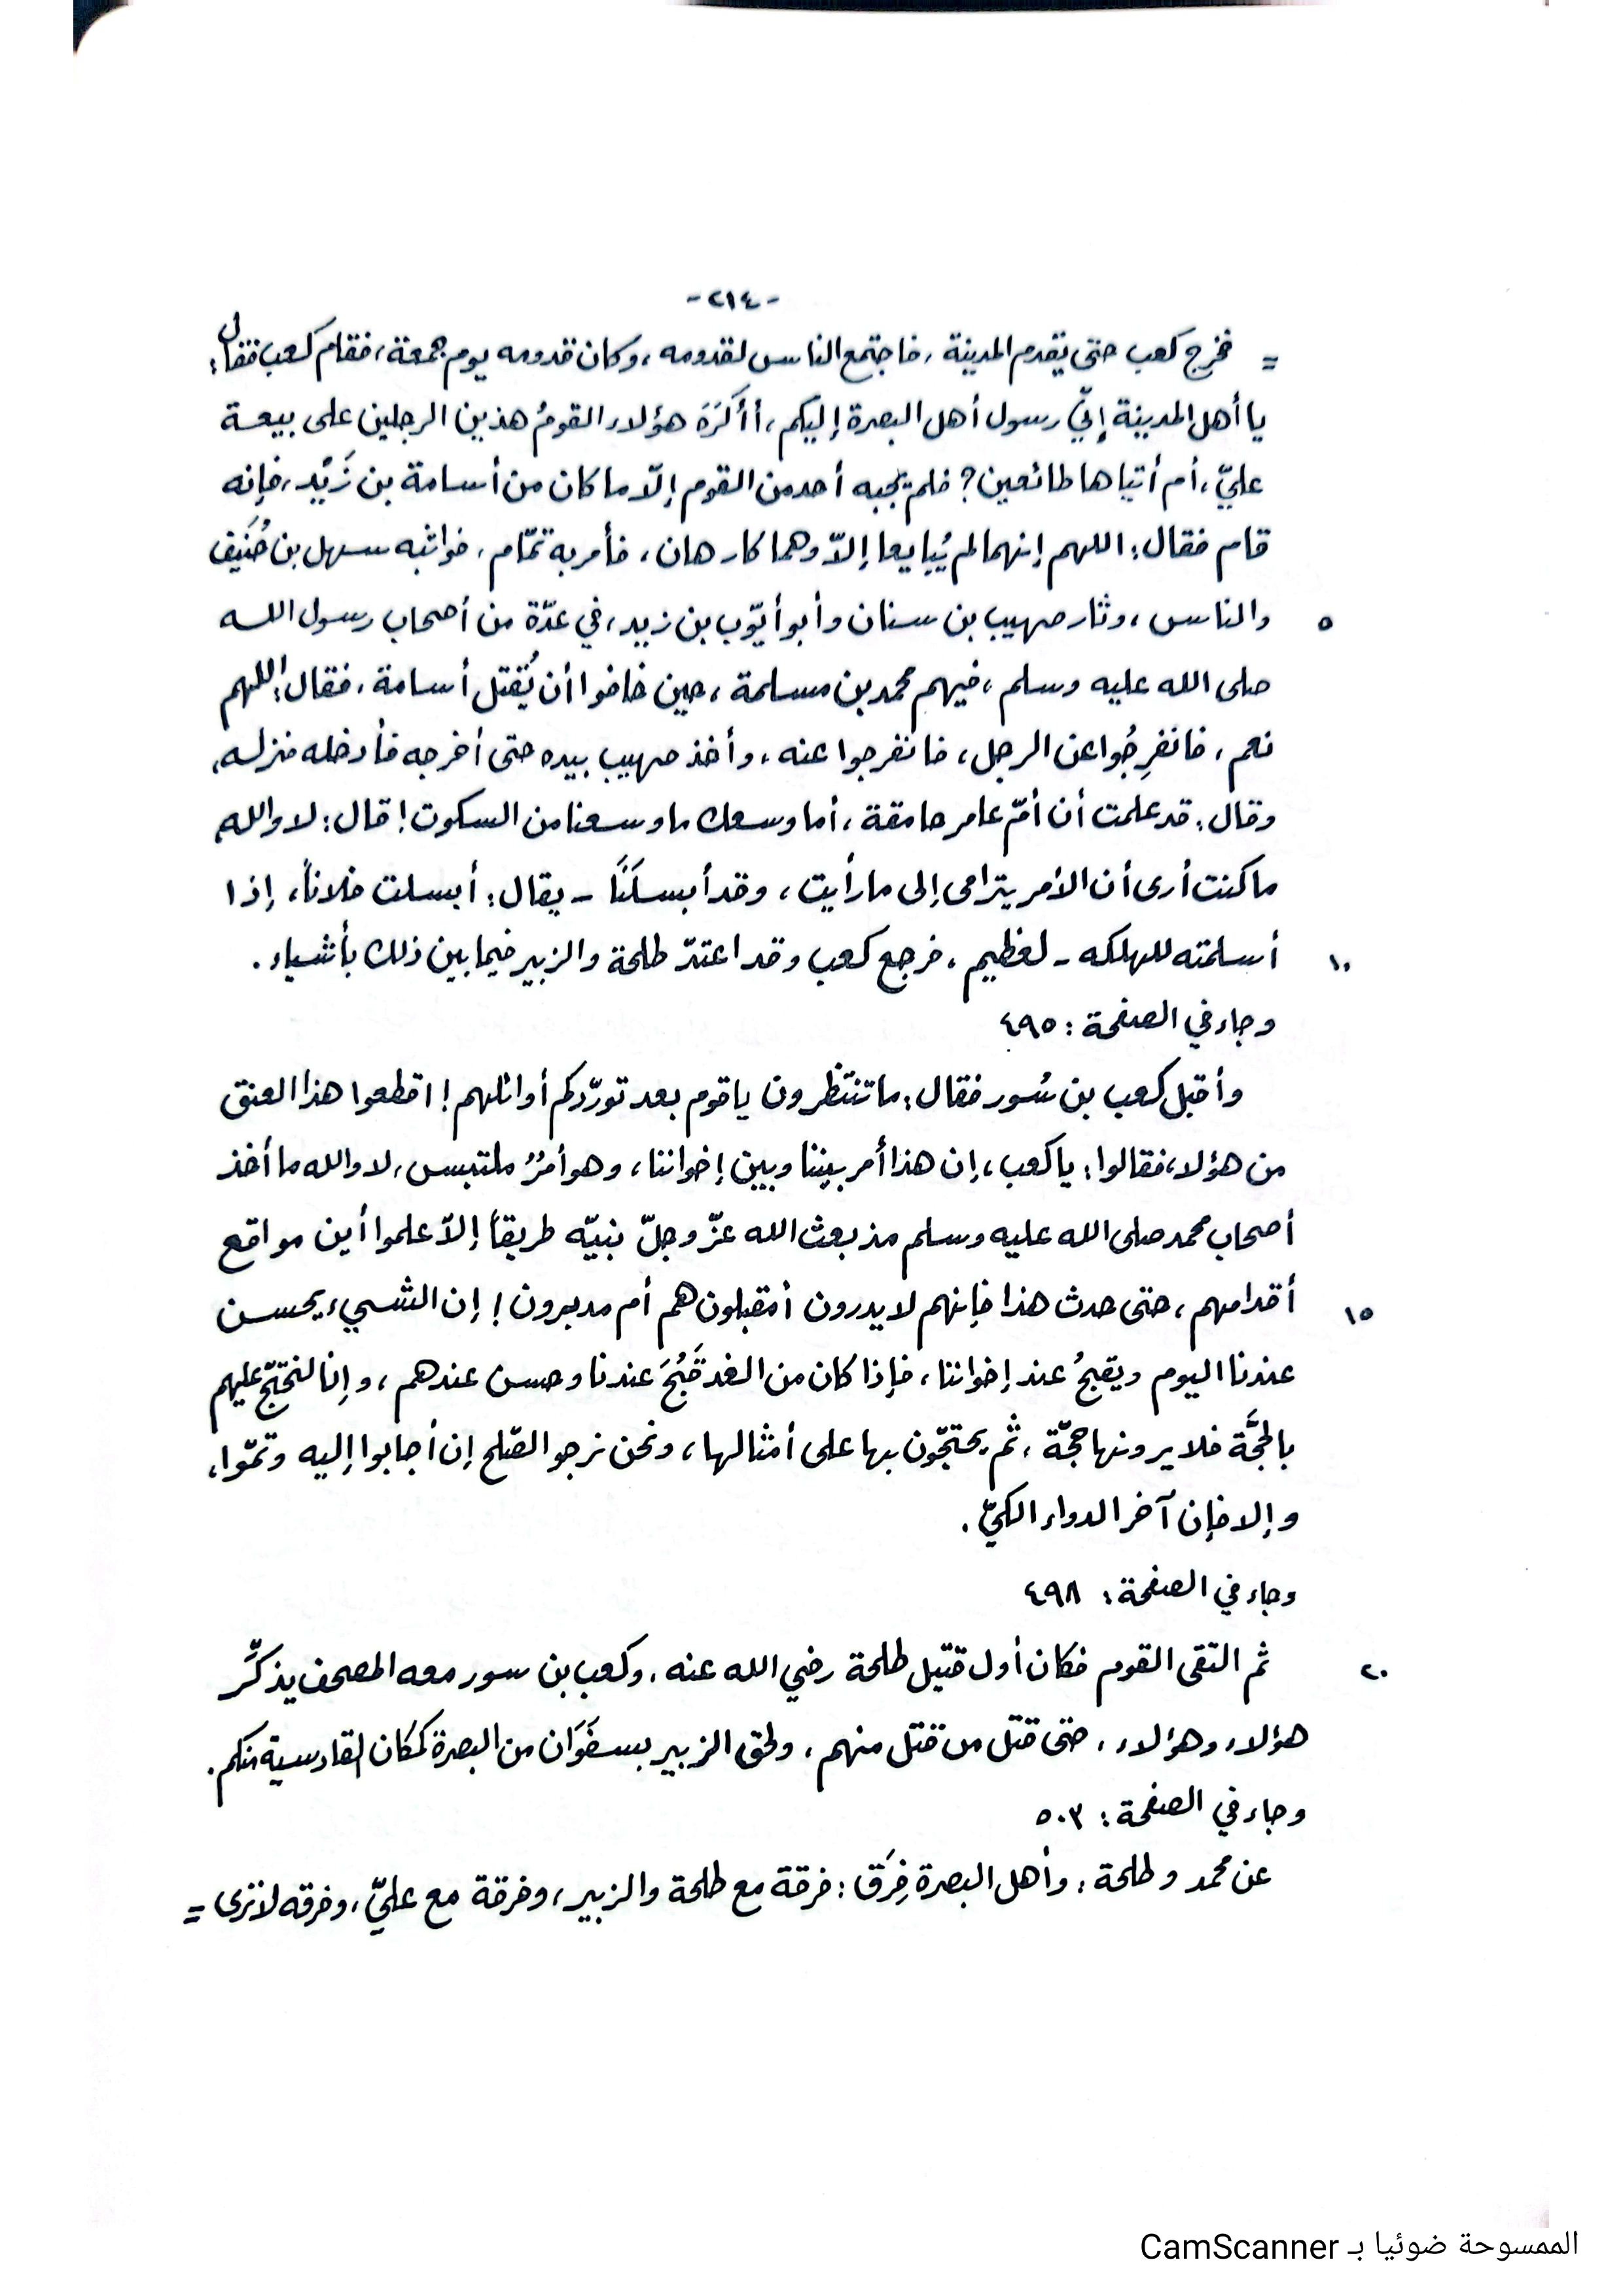 -٢١٤-
= فخرج كعب حتى يقدم المدينة ، فاجتمع الناس لقدومه ، وكان قدومه يوم جمعة ، فقام كعب فقال :
يا أهل المدينة إنّي رسول أهل البصرة إليكم ، أأكرَهَ هؤلاء القومُ هذين الرجلين على بيعة
عليّ ، أم أتياها طائعين ؟ فلم يجبه أحد من القوم إلّا ما كان من أسامة بن زَيْد ، فإنه
قام فقال : اللهم إنهما لم يُبايعا إلاّ وهما كارهان ، فأمر به تمّام ، فواثبه سهل بن حُنَيف
٥ والناس ، وثار صهيب بن سنان وأبو أيّوب بن زيد ، في عدّة من أصحاب رسول الله
صلى الله عليه وسلم ، فيهم محمد بن مسلمة ، حين خافوا أن يُقتل أسامة ، فقال : اللهم
نعم ، فانفرِجُوا عن الرجل ، فانفرجوا عنه ، وأخذ صهيب بيده حتى أخرجه فأدخله منزله ،
وقال : قد علمت أن أمّ عامر حامقة ، أما وسعك ما وسعنا من السكوت ! قال : لا والله
ما كنت أرى أن الأمر يترامى إلى ما رأيت ، وقد أبسلَنَا - يقال : أبسلت فلاناً ، إذا
١٠ أسلمته للهلكه - لعظيم ، فرجع كعب وقد اعتدّ طلحة والزبير فيما بين ذلك بأشياء .
وجاء في الصفحة : ٤٩٥
وأقبل كعب بن سُور فقال : ما تنتظرون يا قوم بعد تورّدكم أوائلهم ! اقطعوا هذا العنق
من هؤلاء فقالوا : يا كعب ، إن هذا أمر بيننا وبين إخواننا ، وهو أمرٌ ملتبس ، لا والله ما أخذ
أصحاب محمد صلى الله عليه وسلم مذ بعث الله عزّ وجلّ نبيّه طريقاً إلاّ علموا أين مواقع
١٥ أقدامهم ، حتى حدث هذا فإنهم لا يدرون أمقبلون هم أم مدبرون ! إن الشيء يحسن
عندنا اليوم ويقبحُ عند إخواننا ، فإذا كان من الغد قَبُحَ عندنا وحسن عندهم ، وإنا لنحتجّ عليهم
بالحجَّة فلا يرونها حجّة ، ثم يحتجّون بها على أمثالها ، ونحن نرجو الصّلح إن أجابوا إليه وتمّوا ،
وإلا فإن آخر الدواء الكيّ .
وجاء في الصفحة : ٤٩٨
٢٠ ثم التقى القوم فكان أول قتيل طلحة رضي الله عنه ، وكعب بن سور معه المصحف يذكّر
هؤلاء وهؤلاء ، حتى قتل من قتل منهم ، ولحق الزبير بسفَوَان من البصرة كمكان القادسية منكم .
وجاء في الصفحة : ٥٠٣
عن محمد وطلحة : وأهل البصرة فِرَق : فرقة مع طلحة والزبير ، وفرقة مع عليّ ، وفرقه لا ترى =
الممسوحة ضوئيا بـ CamScanner